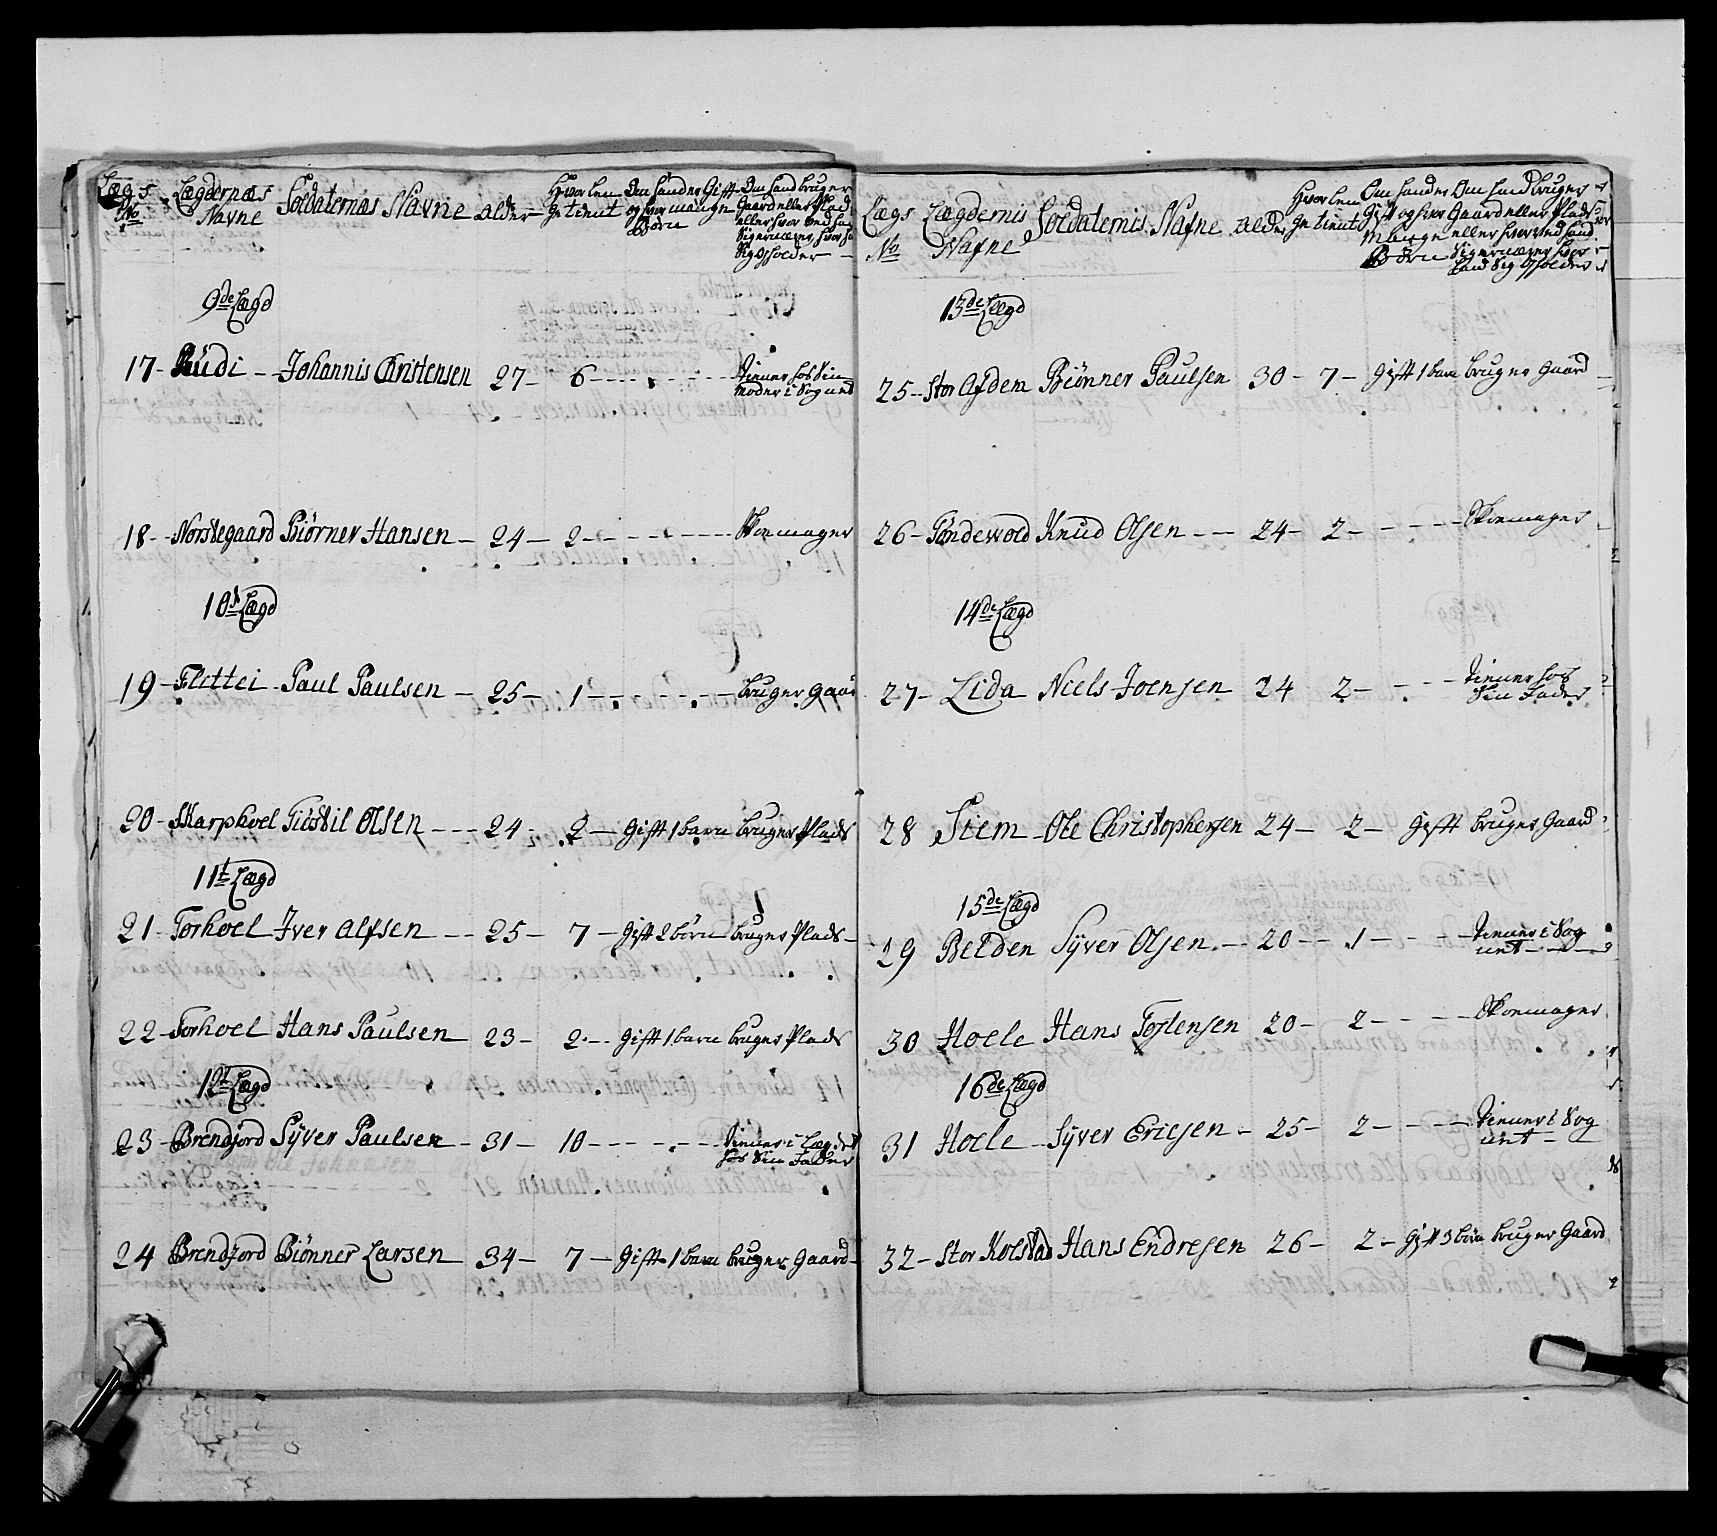 Lægs No
Lægdernæs Navne
Soldaternas Navne
alder
Hvor len ge tient
Om hand er Gift og hvor mange Børn
Om hand bruger Gaard eller Plads eller hvor ved hand Sig ernærer, hvor Sig opholder
9de Lægd
17 - Rudi - Johannis Christensen 27 - 6 - tiener hos Sin Moder i Sogned
18 - Norstegaard Biörner Hansen - 24 - 2 - Skoemager
10d Lægd
19 - Flittei - Paul Paulsen - 25 - 1 - bruger Gaard
20 - Skarphoel Tiöstil Olsen - 24 - 2 - Gift 1 barn bruger Plads
11t Lægd
21 - Torhoel - Iver Alfsen - 25 - 7 - Gift 2 börn bruger Plads
22 - Torhoel Hans Paulsen - 23 - 2 - Gift 1 barn bruger Plads
12t Lægd
23 - Brendjord Syver Paulsen - 31 - 10 - tiener i Lægdet hos Sin Fader
24 Brendjord Biönner Larsen - 34 - 7 - Gift 1 barn bruger Gaard
Lægs No
Lægdernis Nafne
Soldaternis Nafne
alder
Hvor len ge tient
Om hand er Gift og hvor Mange Börn
Om hand bruger Gaard eller Plads eller hvor ved hand Sig ernærer hvor hand Sig opholder
13de Lægd
25 - Stor Ofdem Biönner Paulsen 30 - 7 - Gift 1 barn bruger Gaard
26 - Tondewold Knud Olsen - 24 - 2 - Skoemager
14de Lægd
27 - Lida Niels Joensen 24 2 - tiener hos Sin Fader
28 Siem - Ole Christophersen 24 - 2 - Gift bruger Gaard
15de Lægd
29 Belden Syver Olsen - 20 - 1 - tiener i Sog unt
30 Hoele Hans Torstensen 20 - 2 - Skoemager
16de Lægd
31 Hoele - Syver Ericsen - 25 - 2 - tiener i Sog unt
32 - Stor Kolstad Hans Endresen 26 - 2 - Gift 3 börn bruger Gaard